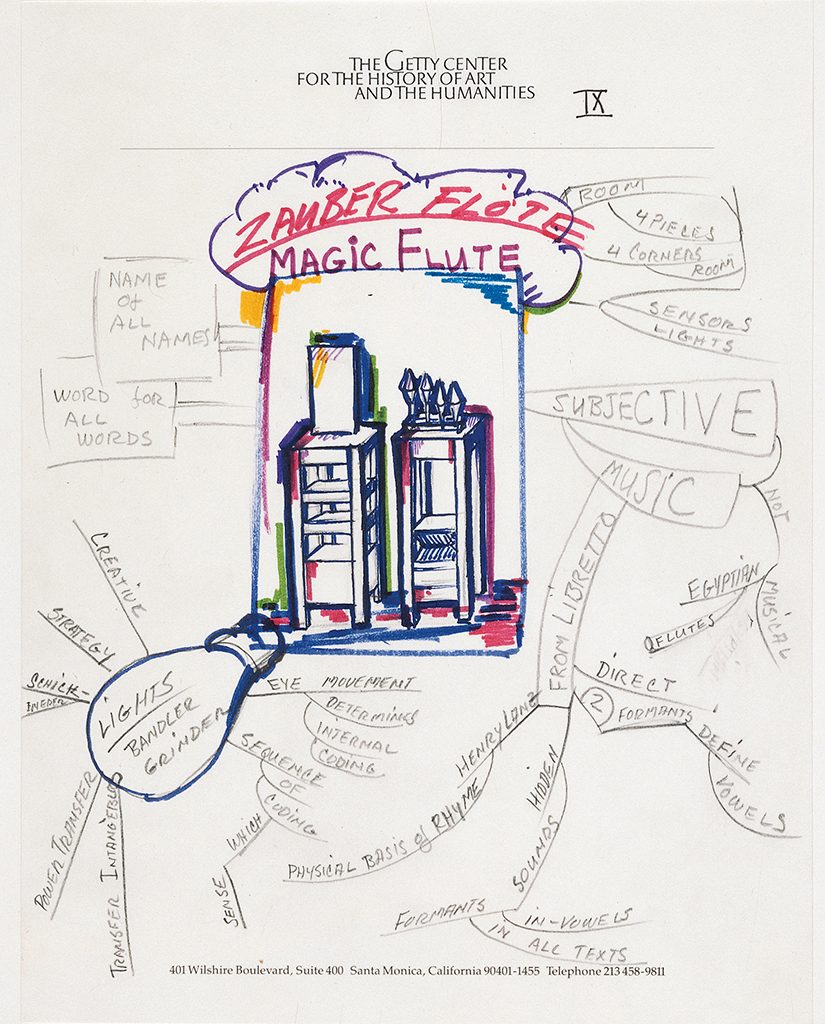 THE GETTY CENTER
FOR THE HISTORY OF ART
AND THE HUMANITIES
IX
ZAUBER FLÖTE
MAGIC FLUTE
ROOM
4 PIECES
4 CORNERS
ROOM
SENSORS
LIGHTS
NAME
of
ALL
NAMES
WORD for
ALL
WORDS
SUBJECTIVE
MUSIC
NOT
MUSICAL
EGYPTIAN
FLUTES
FROM LIBRETTO
DIRECT
2
FORMANTS
DEFINE
VOWELS
HENRY LANZ
PHYSICAL BASIS of RHYME
HIDDEN
SOUNDS
FORMANTS
IN-VOWELS
IN
ALL TEXTS
CREATIVE
STRATEGY
LIGHTS
BANDLER
GRINDER
EYE MOVEMENT
DETERMINES
INTERNAL
CODING
SEQUENCE
OF
CODING
WHICH
SENSE
POWER TRANSFER
401 Wilshire Boulevard, Suite 400 Santa Monica, California 90401-1455 Telephone 213 458-9811